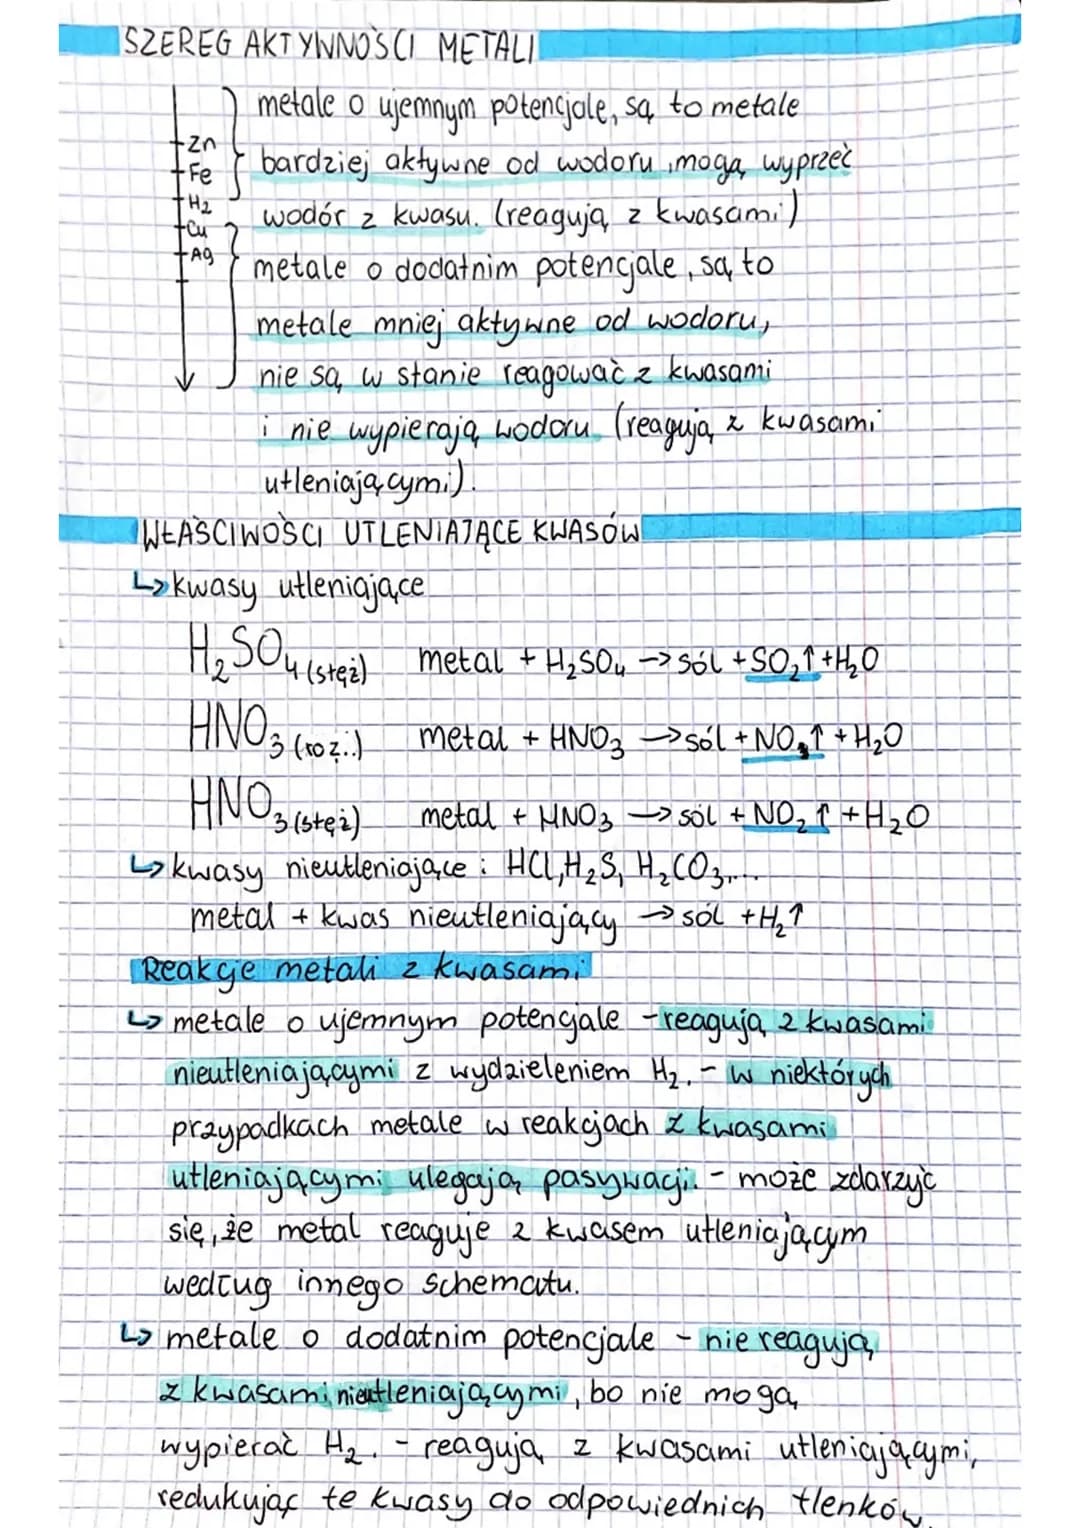 SZEREG AKTYWNOŚCI METALI
Zn
Fe
H₂
Cu
Ag
metale o ujemnym potencjale, są to metale
bardziej aktywne od wodoru, mogą wyprzeć
wodór z kwasu. (reagują z kwasami)
metale o dodatnim potencjale, są to
metale mniej aktywne od wodoru,
nie są w stanie reagować z kwasami
i nie wypierają wodoru (reagują z kwasami
utleniającymi).
WŁAŚCIWOŚCI UTLENIAJĄCE KWASÓW
↳ kwasy utleniające
H₂SO₄ (stęż) metal + H₂SO₄ → sól + SO₂↑ + H₂O
HNO₃ (roz.) metal + HNO₃ → sól + NO↑ + H₂O
HNO₃ (stęż) metal + HNO₃ → sól + NO₂↑ + H₂O
↳ kwasy nieutleniające : HCl, H₂S, H₂CO₃,...
metal + kwas nieutleniający → sól + H₂↑
Reakcje metali z kwasami
↳ metale o ujemnym potencjale - reagują z kwasami
nieutleniającymi z wydzieleniem H₂. - w niektórych
przypadkach metale w reakcjach z kwasami
utleniającymi ulegają pasywacji. - może zdarzyć
się, że metal reaguje z kwasem utleniającym
według innego schematu.
↳ metale o dodatnim potencjale - nie reagują
z kwasami nieutleniającymi, bo nie mogą
wypierać H₂. - reagują z kwasami utleniającymi,
redukując te kwasy do odpowiednich tlenków.